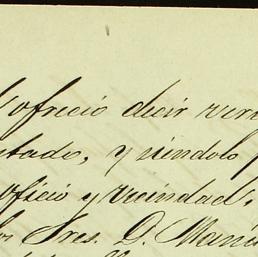 ofreció decir ver
y siendolo
oficio y vecindad,
Sres. D. Manu